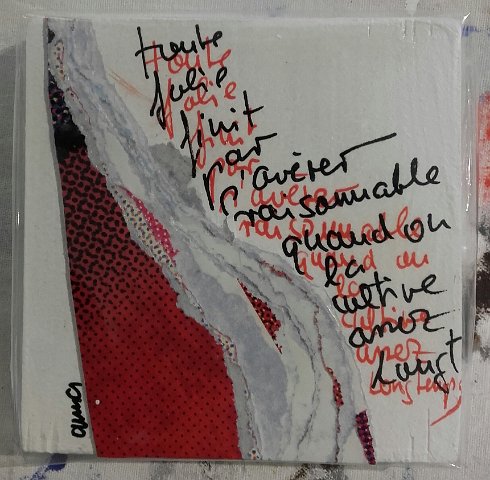 toute
folie
finit
par
s'avérer
raisonnable
quand on
la
cultive
assez
longt
toute
folie
finit
par
s'avérer
raisonnable
quand on
la
cultive
assez
longtemps